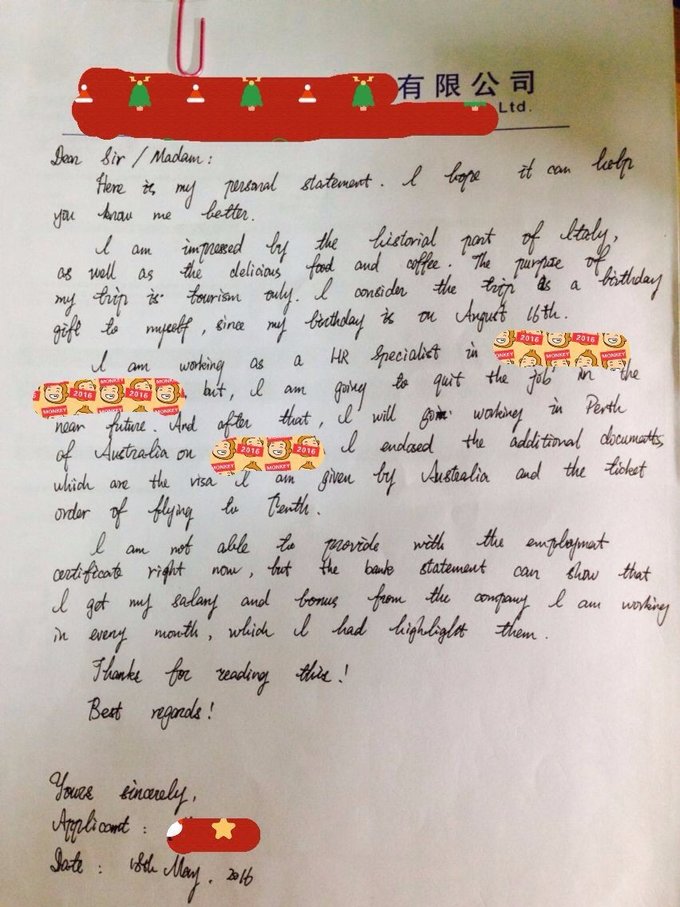 有限公司
Ltd.
Dear Sir / Madam:
Here is my personal statement. I hope it can help
you know me better.
I am impressed by the historial part of Italy,
as well as the delicious food and coffee. The purpose of
my trip is tourism only. I consider the trip as a birthday
gift to myself, since my birthday is on August 16th.
I am working as a HR Specialist in 2016 2016
MONKEY 2016 MONKEY 2016 MONKEY but, I am going to quit the job in the
near future. And after that, I will go working in Perth
of Australia on 2016 2016 MONKEY I enclosed the additional documents
which are the visa I am given by Australia and the ticket
order of flying to Perth.
I am not able to provide with the employment
certificate right now, but the bank statement can show that
I get my salary and bonus from the company I am working
in every month, which I had highlight them.
Thanks for reading this!
Best regards!
Yours sincerely,
Applicant :
Date : 18th May. 2016